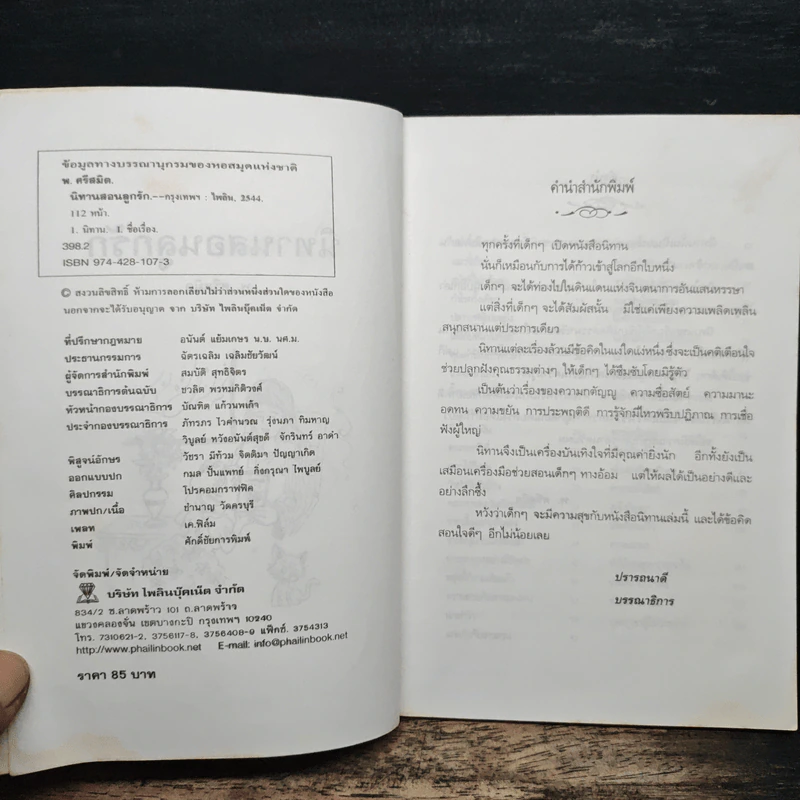 ข้อมูลทางบรรณานุกรมของหอสมุดแห่งชาติ
พ. ศรีสมิต.
นิทานสอนลูกรัก.--กรุงเทพฯ : ไพลิน, 2544.
112 หน้า.
1. นิทาน. I. ชื่อเรื่อง.
398.2
ISBN 974-428-107-3
© สงวนลิขสิทธิ์ ห้ามการลอกเลียนไม่ว่าส่วนหนึ่งส่วนใดของหนังสือ
นอกจากจะได้รับอนุญาต จาก บริษัท ไพลินบุ๊คเน็ต จำกัด
ที่ปรึกษากฎหมาย อนันต์ แย้มเกษร น.บ. นศ.ม.
ประธานกรรมการ ฉัตรเฉลิม เฉลิมชัยวัฒน์
ผู้จัดการสำนักพิมพ์ สมบัติ สุทธิจิตร
บรรณาธิการต้นฉบับ ชวลิต พรหมกิติวงศ์
หัวหน้ากองบรรณาธิการ บัณฑิต แก้วนพเก้า
ประจำกองบรรณาธิการ ภัทรภร ไวคำนวณ รุ่งนภา ทิมหาญ
วิบูลย์ หวังอนันต์สุขดี จักรินทร์ อาดำ
พิสูจน์อักษร วัชรา มีท้วม จิตติมา ปัญญาเกิด
ออกแบบปก กมล ปิ่นแพทย์ กิ่งกรุณา ไพบูลย์
ศิลปกรรม โปรคอมกราฟฟิค
ภาพปก/เนื้อ ชำนาญ วัดครบุรี
เพลท เค.ฟิล์ม
พิมพ์ ศักดิ์ชัยการพิมพ์
จัดพิมพ์/จัดจำหน่าย
บริษัท ไพลินบุ๊คเน็ต จำกัด
834/2 ซ.ลาดพร้าว 101 ถ.ลาดพร้าว
แขวงคลองจั่น เขตบางกะปิ กรุงเทพฯ 10240
โทร. 7310621-2, 3756117-8, 3756408-9 แฟ็กซ์. 3754313
http://www.phailinbook.net E-mail: info@phailinbook.net
ราคา 85 บาท
คำนำสำนักพิมพ์
ทุกครั้งที่เด็กๆ เปิดหนังสือนิทาน
นั่นก็เหมือนกับการได้ก้าวเข้าสู่โลกอีกใบหนึ่ง
เด็กๆ จะได้ท่องไปในดินแดนแห่งจินตนาการอันแสนหรรษา
แต่สิ่งที่เด็กๆ จะได้สัมผัสนั้น มิใช่แค่เพียงความเพลิดเพลิน
สนุกสนานแต่ประการเดียว
นิทานแต่ละเรื่องล้วนมีข้อคิดในแง่ใดแง่หนึ่ง ซึ่งจะเป็นคติเตือนใจ
ช่วยปลูกฝังคุณธรรมต่างๆ ให้เด็กๆ ได้ซึมซับโดยมิรู้ตัว
เป็นต้นว่าเรื่องของความกตัญญู ความซื่อสัตย์ ความมานะ
อดทน ความขยัน การประพฤติดี การรู้จักมีไหวพริบปฏิภาณ การเชื่อ
ฟังผู้ใหญ่
นิทานจึงเป็นเครื่องบันเทิงใจที่มีคุณค่ายิ่งนัก อีกทั้งยังเป็น
เสมือนเครื่องมือช่วยสอนเด็กๆ ทางอ้อม แต่ให้ผลได้เป็นอย่างดีและ
อย่างลึกซึ้ง
หวังว่าเด็กๆ จะมีความสุขกับหนังสือนิทานเล่มนี้ และได้ข้อคิด
สอนใจดีๆ อีกไม่น้อยเลย
ปรารถนาดี
บรรณาธิการ